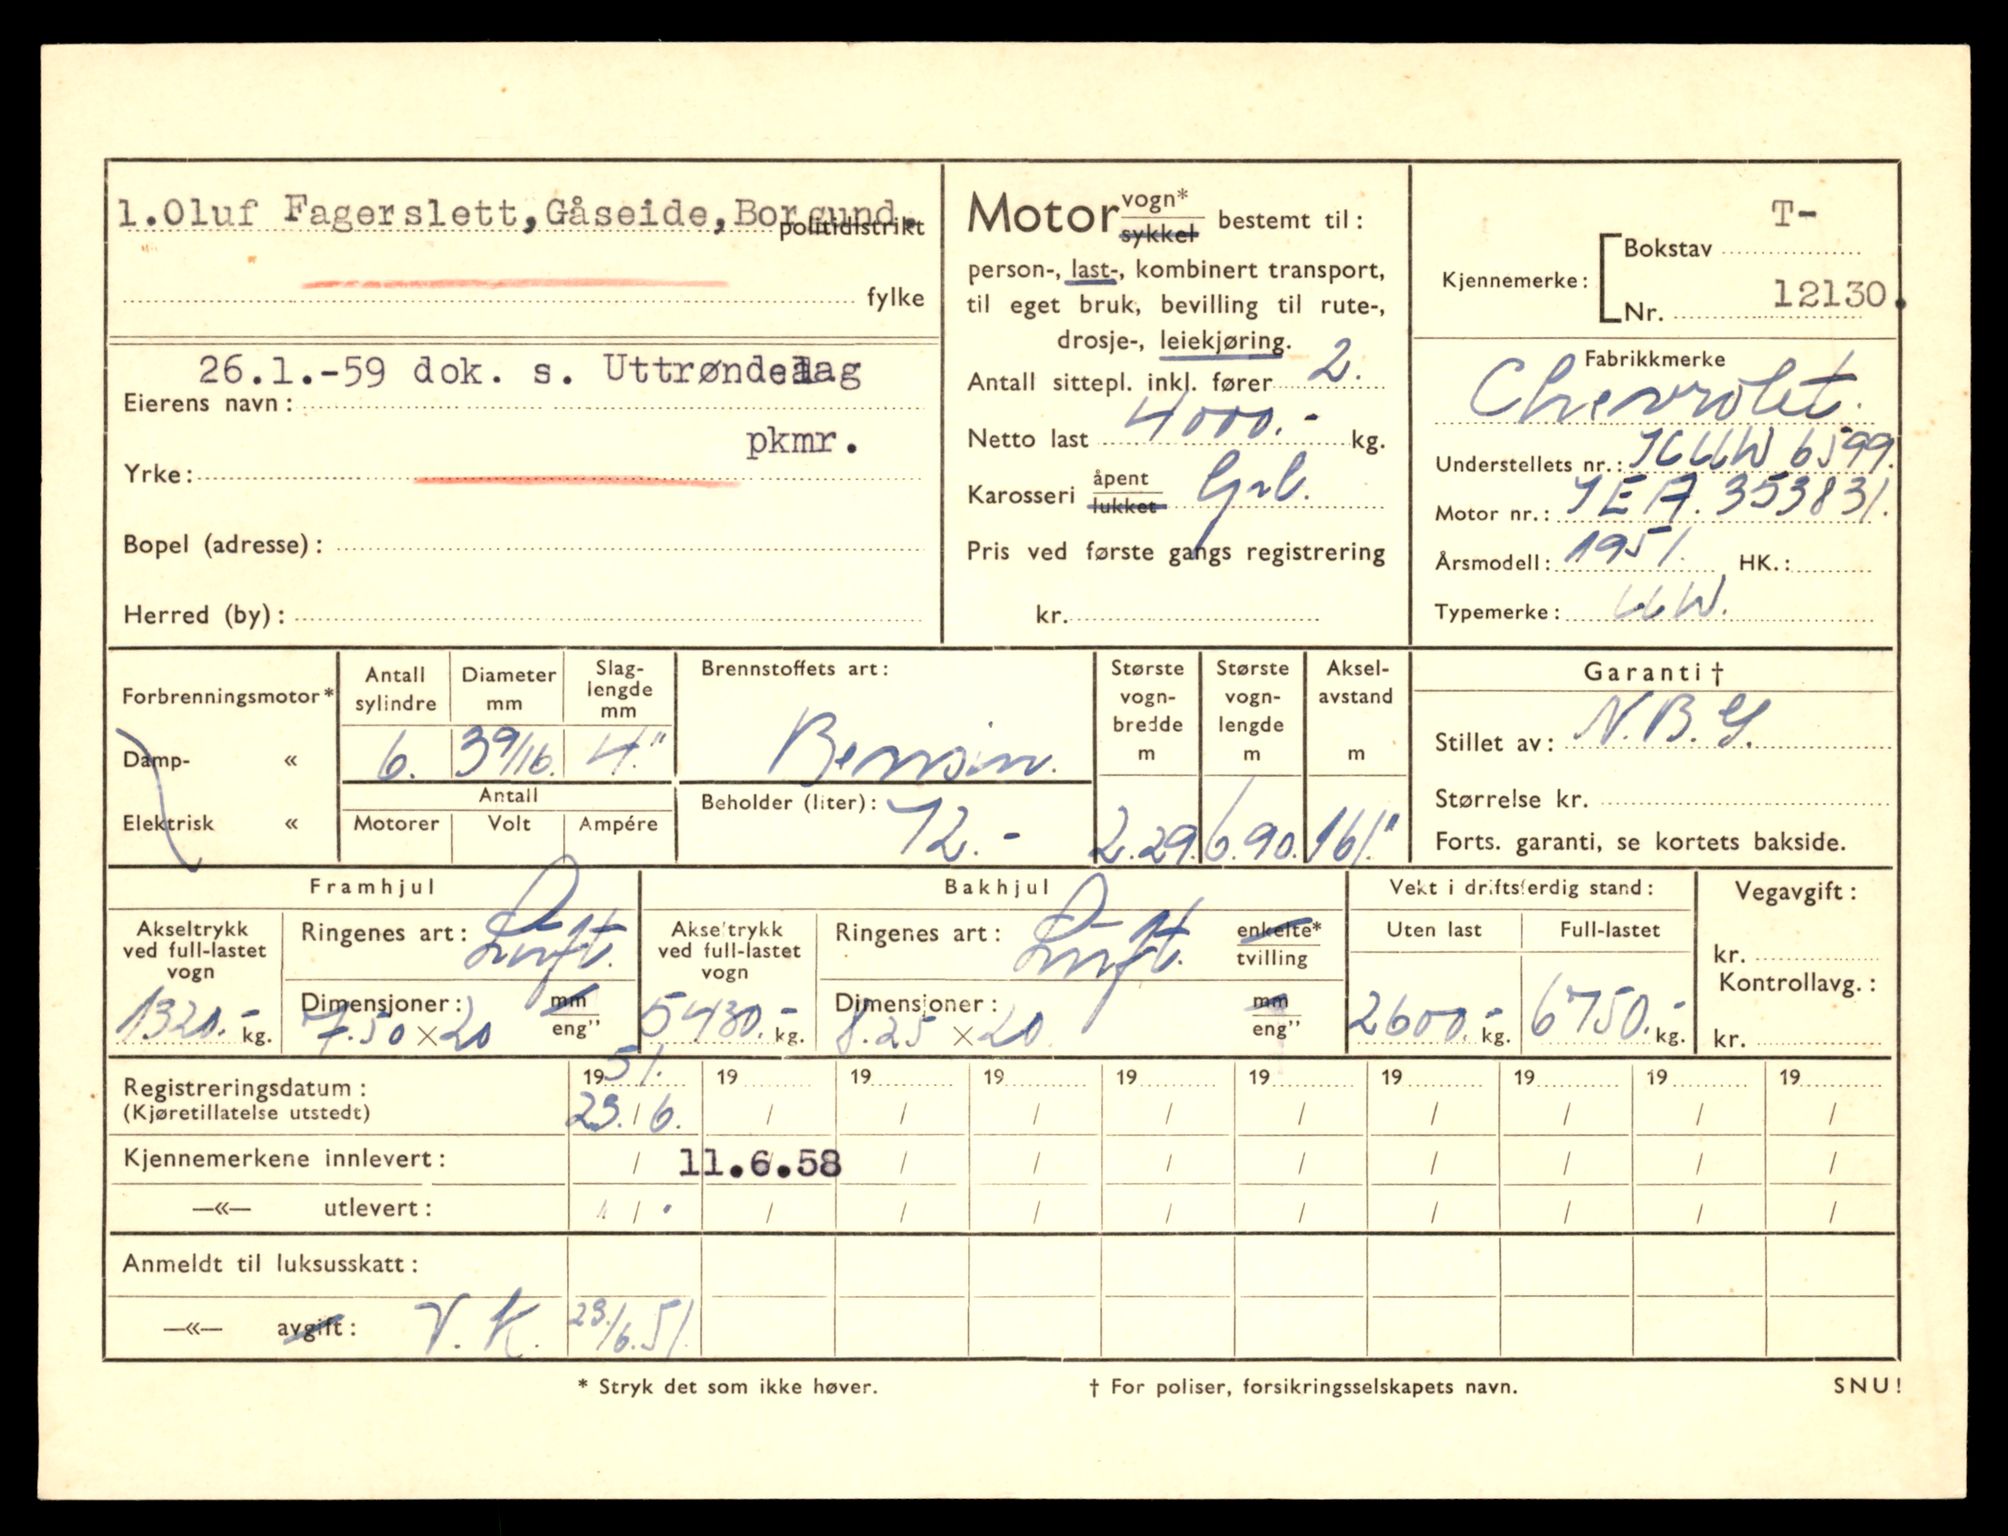 1.Oluf Fagerslett,Gåseide,Borgund.
politidistrikt
fylke
26.1.-59 dok. s. Uttrøndelag
Eierens navn:
pkmr.
Yrke:
Bopel (adresse):
Herred (by):
Motor vogn* sykkel bestemt til:
person-, last-, kombinert transport,
til eget bruk, bevilling til rute-,
drosje-, leiekjøring.
Antall sittepl. inkl. fører 2.
Netto last 4000.- kg.
Karosseri åpent lukket
Pris ved første gangs registrering
kr.
T-
Kjennemerke: Bokstav
Nr. 12130.
Fabrikkmerke
Chevrolet.
Understellets nr.: JCUW 6599.
Motor nr.: JEA. 353831.
Årsmodell: 1951. HK.:
Typemerke: UW.
Forbrenningsmotor*
Damp- «
Elektrisk «
Antall sylindre
Diameter mm
Slag-lengde mm
6. 3 9/16. 4."
Antall
Motorer Volt Ampére
Brennstoffets art:
Bensin.
Beholder (liter): 72.-
Største vogn-bredde m
2.29.
Største vogn-lengde m
6.90.
Aksel-avstand m
161."
Garanti †
Stillet av: N.B.G.
Størrelse kr.
Forts. garanti, se kortets bakside.
Framhjul
Akseltrykk ved full-lastet vogn
1320.- kg.
Ringenes art: Luft.
Dimensjoner: mm
7.50 × 20 eng”
Bakhjul
Akseltrykk ved full-lastet vogn
5430.- kg.
Ringenes art: Luft. enkelte* tvilling
Dimensjoner: mm
8.25 × 20 eng”
Vekt i driftsferdig stand:
Uten last Full-lastet
2600.- kg. 6750.- kg.
Vegavgift:
kr.
Kontrollavg.:
kr.
Registreringsdatum: 1951. 19 19 19 19 19 19 19 19 19
(Kjøretillatelse utstedt) 23./6. / / / / / / / / /
Kjennemerkene innlevert: / 11.6.58 / / / / / / / /
—«— utlevert: / / / / / / / / / /
Anmeldt til luksusskatt:
—«— avgift: V. K. 23./6.51.
* Stryk det som ikke høver.
† For poliser, forsikringsselskapets navn.
SNU!